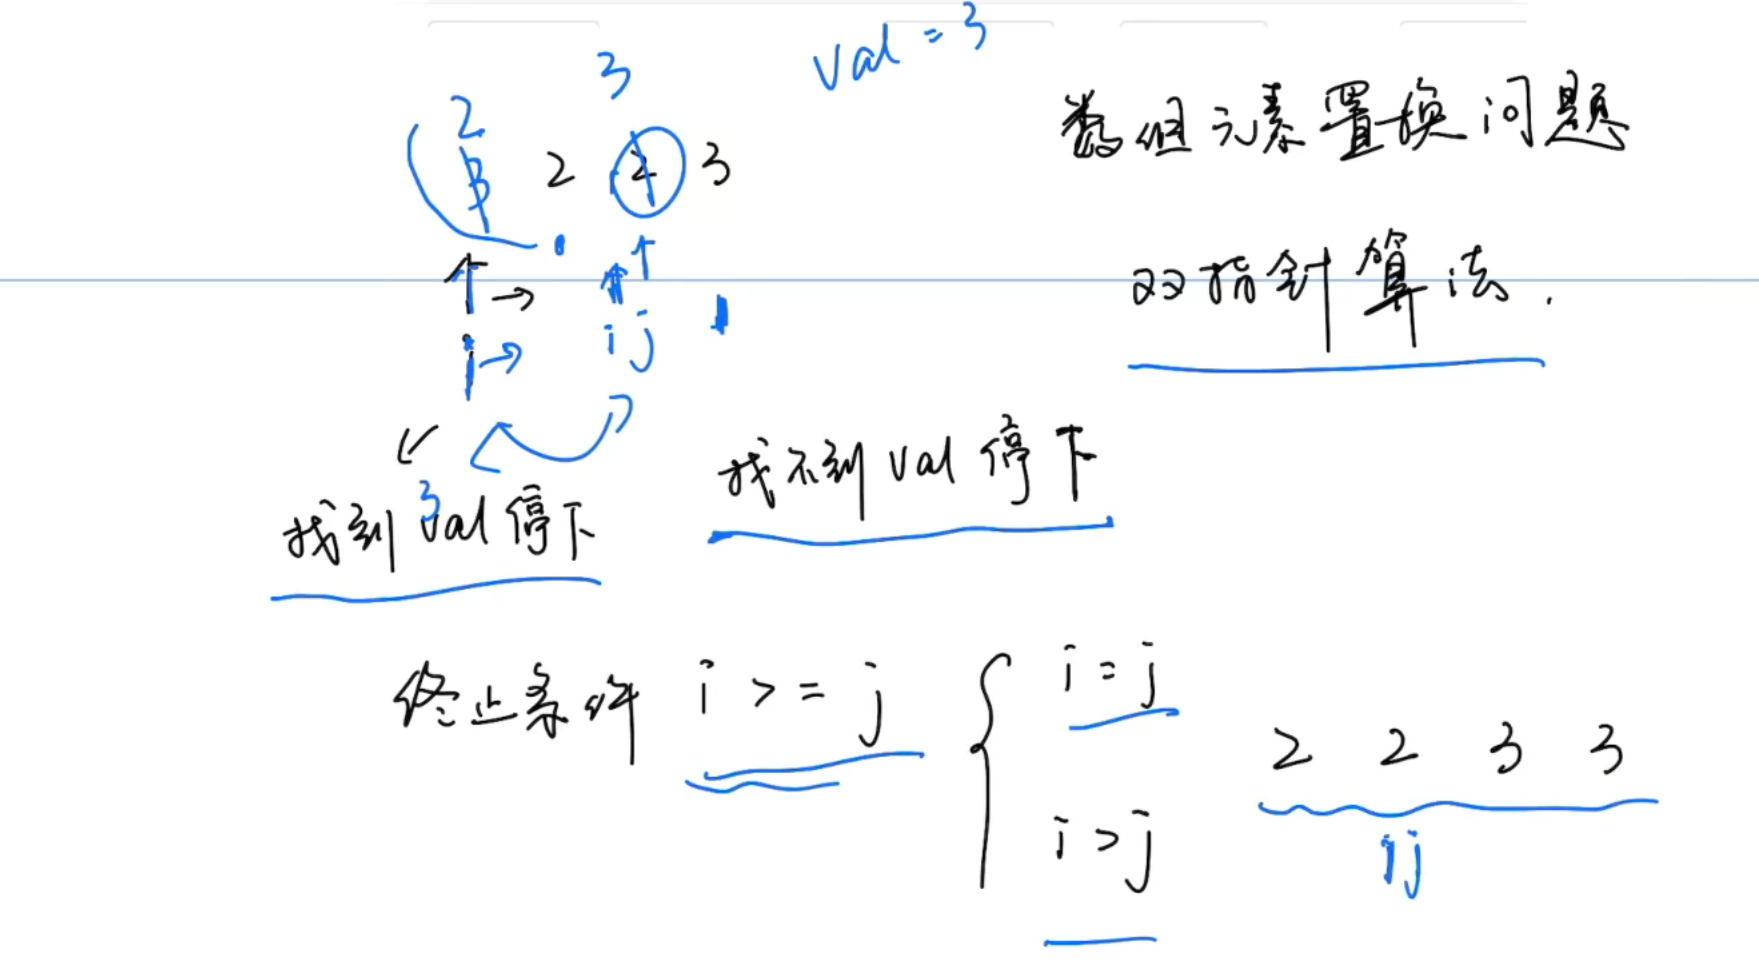 val = 3
3
2
3 2 2 3
数组元素置换问题
双指针算法.
i j
找到val停下
3
找不到val停下
终止条件 i >= j
i = j
i > j
2 2 3 3
i j